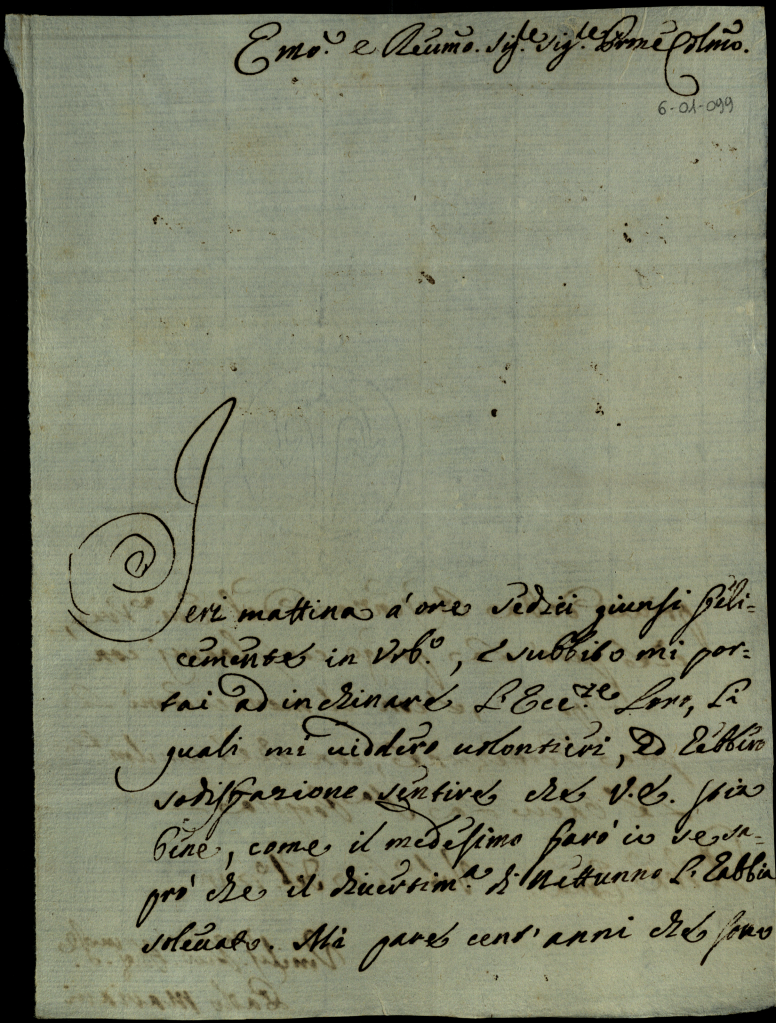 Emo. e Reumo. Sig.re Sig.re Prone Colmo.
6-01-099
Ieri mattina a' ore sedici giunsi feli=
cemente in Urb.o, e subbito mi por=
tai ad inchinare L'Ecc.ze Loro, Li
quali mi uiddero uolontieri, ed hebbiro
sodisfazione sentire che V.E. stia
bene, come il medesimo farò io se sa=
prò che il diuertim.o di Nettunno L'habbia
solleuato. Mi pare cent'anni che sono